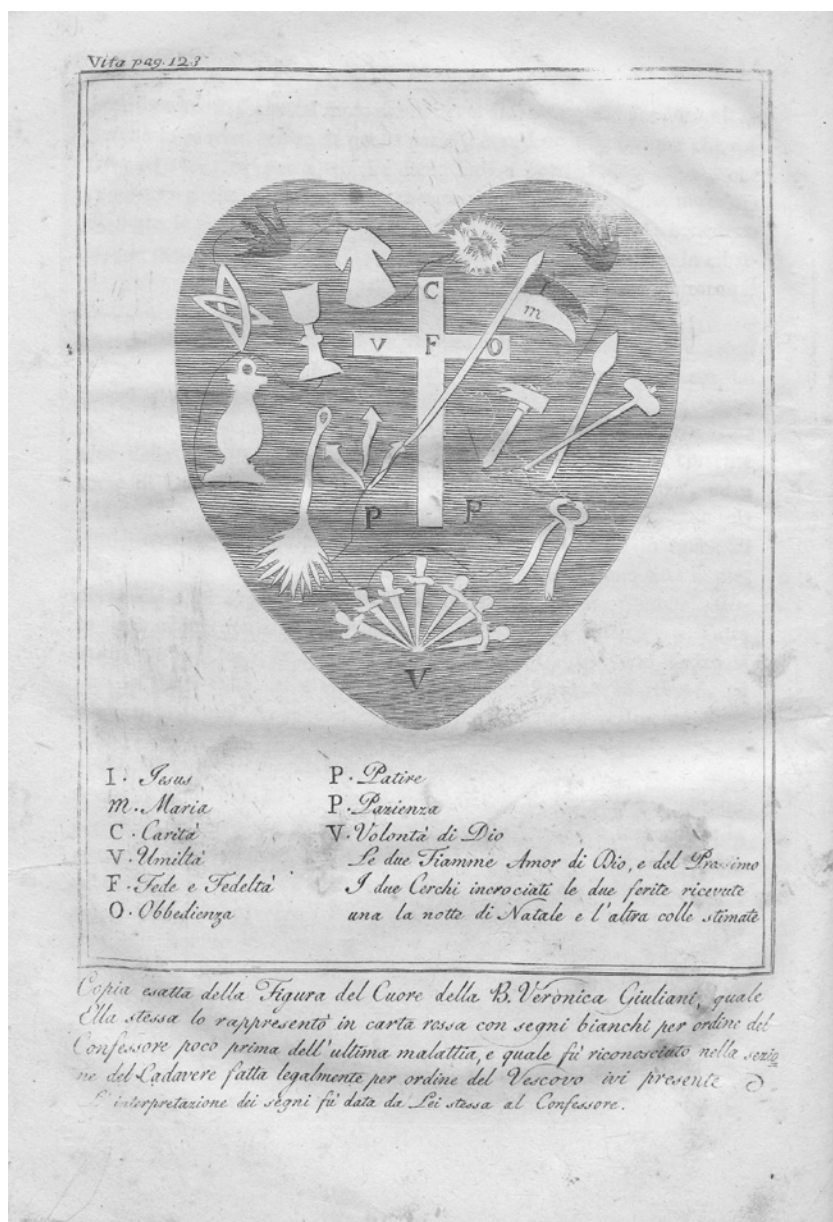 Vita pag. 123
C
I
m
V F O
P P
V
I. Jesus
m. Maria
C. Carità
V. Umiltà
F. Fede e Fedeltà
O. Obbedienza
P. Patire
P. Pazienza
V. Volontà di Dio
Le due Fiamme Amor di Dio, e del Prossimo
I due Cerchi incrociati le due ferite ricevute
una la notte di Natale e l'altra colle stimate
Copia esatta della Figura del Cuore della B. Veronica Giuliani, quale
Ella stessa lo rappresentò in carta rossa con segni bianchi per ordine del
Confessore poco prima dell'ultima malattia, e quale fù riconosciuto nella sezio
ne del Cadavere fatta legalmente per ordine del Vescovo ivi presente
L'interpretazione dei segni fù data da Lei stessa al Confessore.